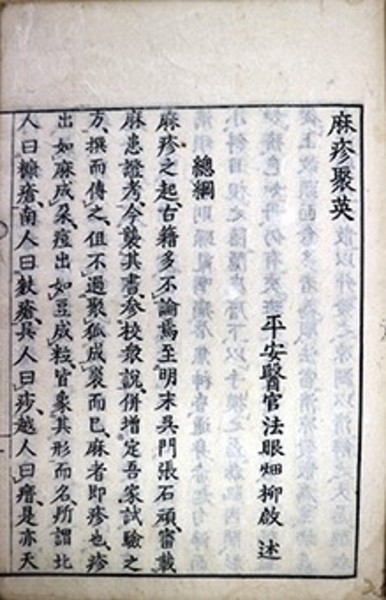 麻疹聚英
平安醫官法眼畑柳啟 述
總綱
麻疹之起、古籍多不論焉至明末吳門張石頑、載
麻患證考、今襲其書參校衆說、併增定吾家試驗之
方、撰而傳之、但不過聚狐成裘而已麻者即疹也、疹
出如麻成朵、痘出如豆成粒皆象其形而名、所謂北
人曰糠瘡、南人曰麩瘡、吳人曰痧、越人曰瘄、是亦天